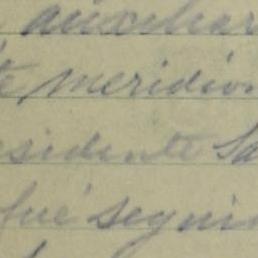 auxiliar
te meridion
esidente Sa
fué seguin